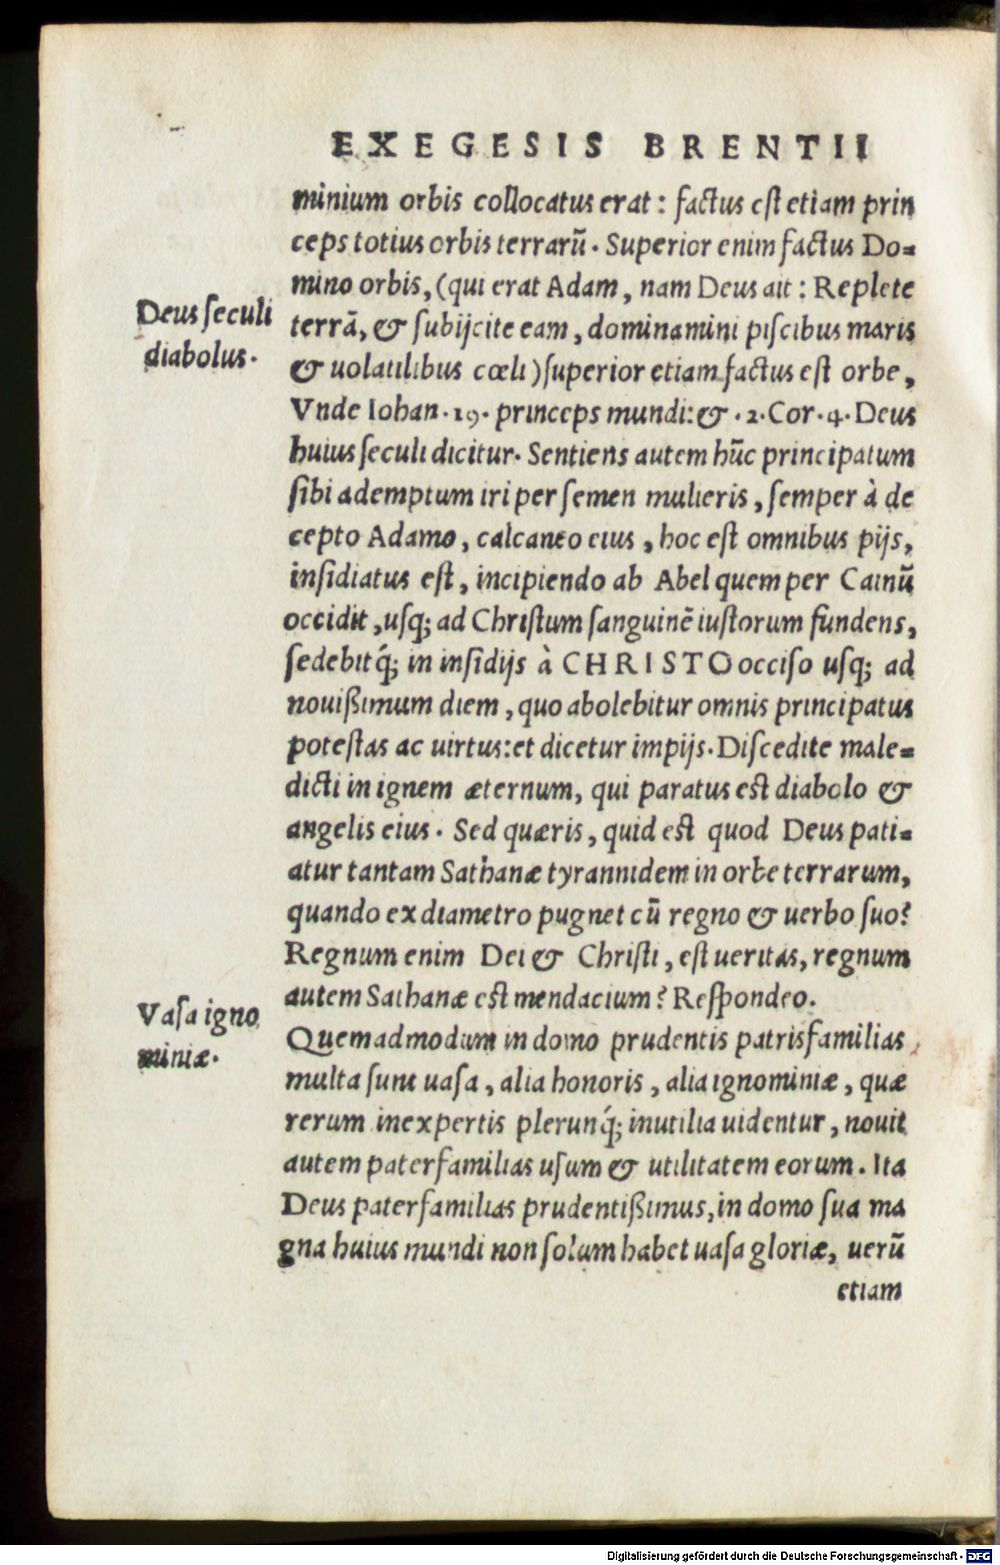 EXEGESIS BRENTII
minium orbis collocatus erat : factus est etiam prin
ceps totius orbis terrarū. Superior enim factus Do=
mino orbis, (qui erat Adam, nam Deus ait : Replete
Deus seculi
diabolus.
terrā, & subijcite eam, dominamini piscibus maris
& uolatilibus cœli) superior etiam factus est orbe,
Vnde Iohan. 19. princeps mundi: & . 2. Cor. 4. Deus
huius seculi dicitur. Sentiens autem hūc principatum
sibi ademptum iri per semen mulieris, semper à de
cepto Adamo, calcaneo eius, hoc est omnibus pijs,
insidiatus est, incipiendo ab Abel quem per Cainū
occidit, usq; ad Christum sanguinē iustorum fundens,
sedebitq́; in insidijs à CHRISTO occiso usq; ad
nouißimum diem, quo abolebitur omnis principatus
potestas ac uirtus: et dicetur impijs. Discedite male=
dicti in ignem æternum, qui paratus est diabolo &
angelis eius. Sed quæris, quid est quod Deus pati=
atur tantam Sathanæ tyrannidem in orbe terrarum,
quando ex diametro pugnet cū regno & uerbo suo?
Regnum enim Dei & Christi, est ueritas, regnum
autem Sathanæ est mendacium? Respondeo.
Vasa igno
miniæ.
Quemadmodum in domo prudentis patrisfamilias,
multa sunt uasa, alia honoris, alia ignominiæ, quæ
rerum inexpertis plerunq́; inutilia uidentur, nouit
autem paterfamilias usum & utilitatem eorum. Ita
Deus paterfamilias prudentißimus, in domo sua ma
gna huius mundi non solum habet uasa gloriæ, uerū
etiam
Digitalisierung gefördert durch die Deutsche Forschungsgemeinschaft - DFG